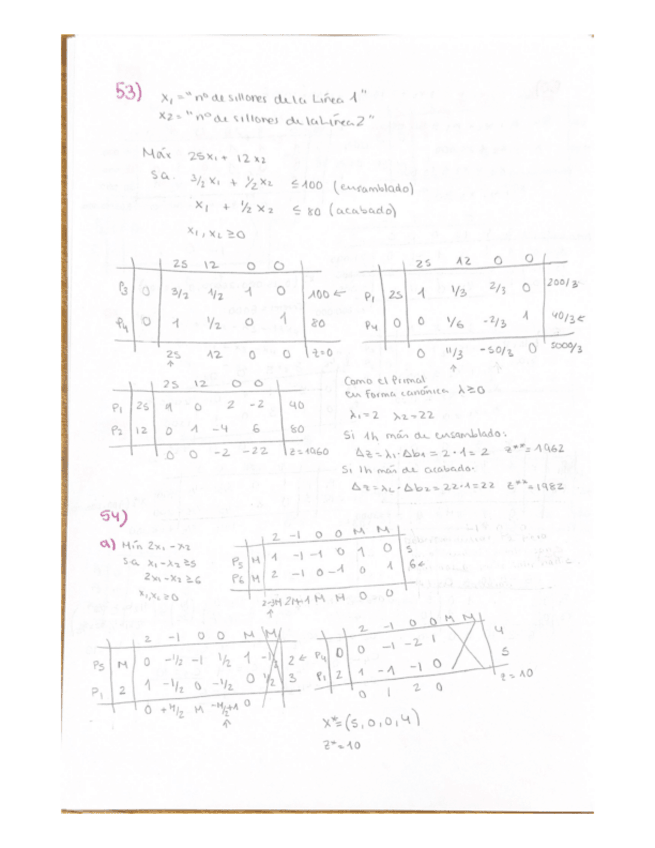 53) x₁ = "nº de sillones de la Línea 1"
x₂ = "nº de sillones de la Línea 2"
Máx 25x₁ + 12x₂
s.a. 3/2 x₁ + 1/2 x₂ ≤ 100 (ensamblado)
x₁ + 1/2 x₂ ≤ 80 (acabado)
x₁, x₂ ≥ 0
25 12 0 0
P3 0 3/2 1/2 1 0 100 ←
P4 0 1 1/2 0 1 80
25 12 0 0 z=0
↑
25 12 0 0
P1 25 1 1/3 2/3 0 200/3
P4 0 0 1/6 -2/3 1 40/3 ←
0 11/3 -50/3 0 5000/3
↑
25 12 0 0
P1 25 1 0 2 -2 40
P2 12 0 1 -4 6 80
0 0 -2 -22 z=1960
Como el Primal
en forma canónica λ≥0
λ₁=2 λ₂=22
Si 1h más de ensamblado:
Δz = λ₁·Δb₁ = 2·1 = 2 z** = 1962
Si 1h más de acabado:
Δz = λ₂·Δb₂ = 22·1 = 22 z** = 1982
54)
a) Min 2x₁ - x₂
s.a x₁ - x₂ ≥ 5
2x₁ - x₂ ≥ 6
x₁, x₂ ≥ 0
2 -1 0 0 M M
P5 M 1 -1 -1 0 1 0 5
P6 M 2 -1 0 -1 0 1 6 ←
2-3M 2M-1 M M 0 0
↑
2 -1 0 0 M M
P5 M 0 -1/2 -1 1/2 1 -1/2 2 ←
P1 2 1 -1/2 0 -1/2 0 1/2 3
0 +M/2 M -M/2+1 0
↑
2 -1 0 0 M M
P4 0 0 -1 -2 1 4
P1 2 1 -1 -1 0 5
0 1 2 0 z=10
x* = (5,0,0,4)
z* = 10